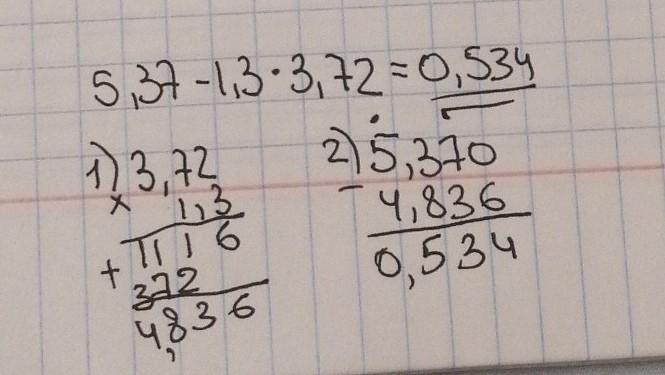 5,37 - 1,3 · 3,72 = 0,534
1) 3,72
× 1,3
1116
+ 372
4,836
2) 5,370
- 4,836
0,534